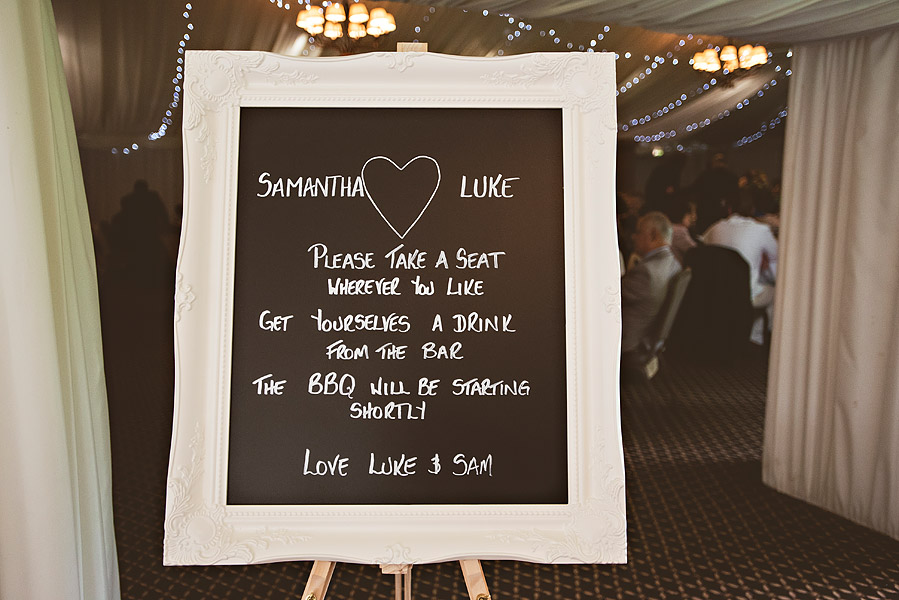 SAMANTHA LUKE
PLEASE TAKE A SEAT
WHEREVER YOU LIKE
GET YOURSELVES A DRINK
FROM THE BAR
THE BBQ WILL BE STARTING
SHORTLY
LOVE LUKE & SAM